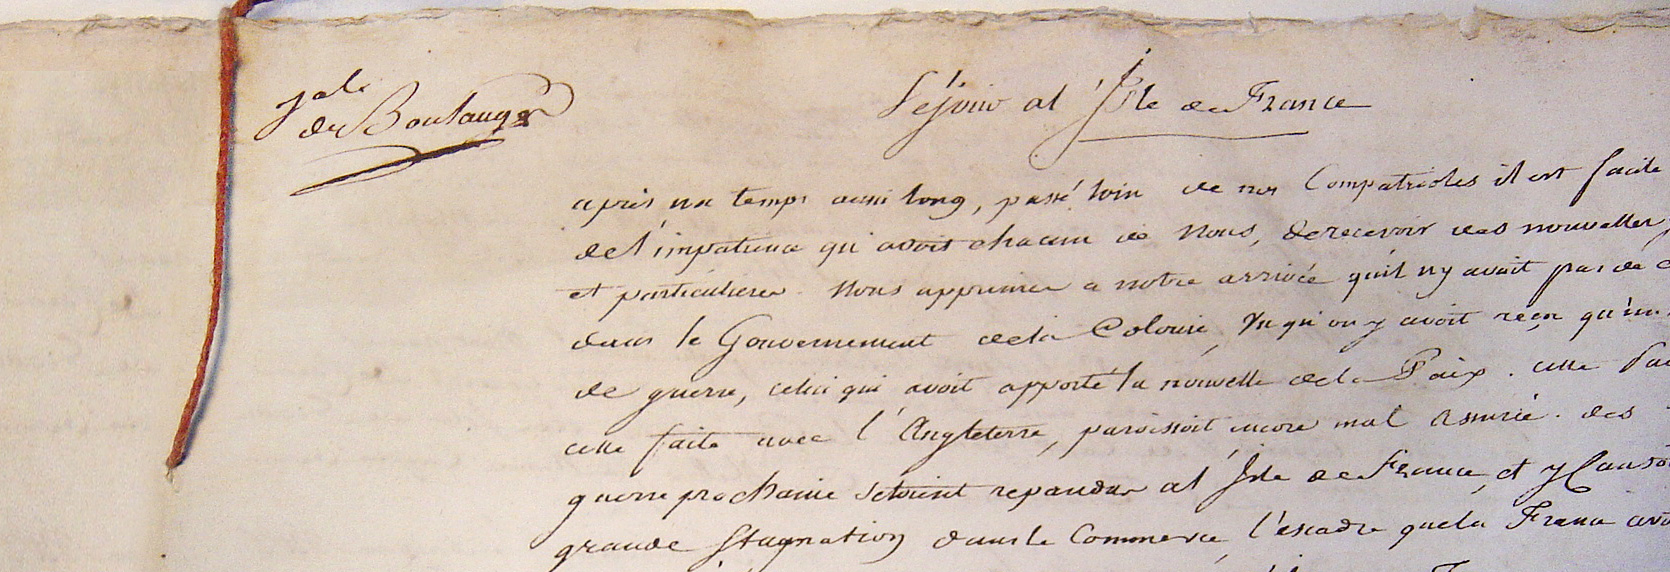 Jal de
de Boulanger
Séjour al'Isle de France
après un temps aussi long, passé loin de nos Compatriotes il est facile
de l'impatience qu'avoit chacun de Nous, de recevoir des nouvelles
et particulieres. Nous apprimes a notre arrivée qu'il n'y avait pas de
dans le Gouvernement de la Colonie, qu'on y avoit reçu qu'un
de guerre, celui qui avoit apporté la nouvelle de la Paix. cette Paix
celle faite avec l'Angleterre, paroissoit encore mal assurée. des
guerre prochaine s'etoient repandus al'Isle de France, et y
grande Stagnation dans le Commerce, l'escadre que la France